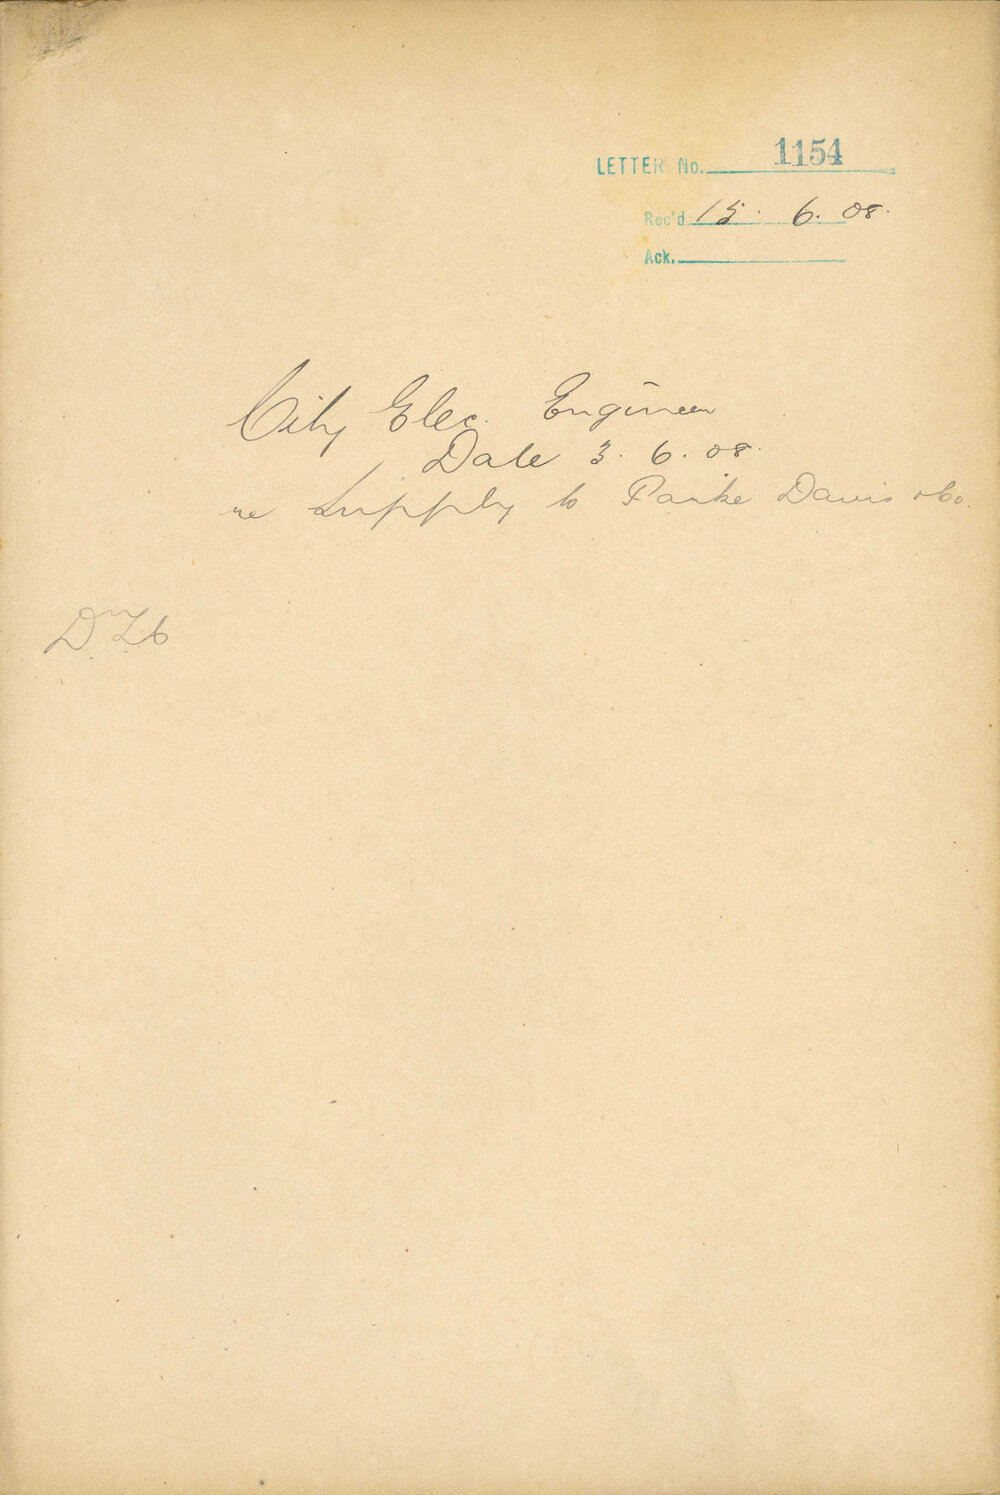 LETTER No. 1154
Rec'd 15. 6. 08.
Ack.
City Elec. Engineer
Date 3. 6. 08.
re Supply to Parke Davis & Co.